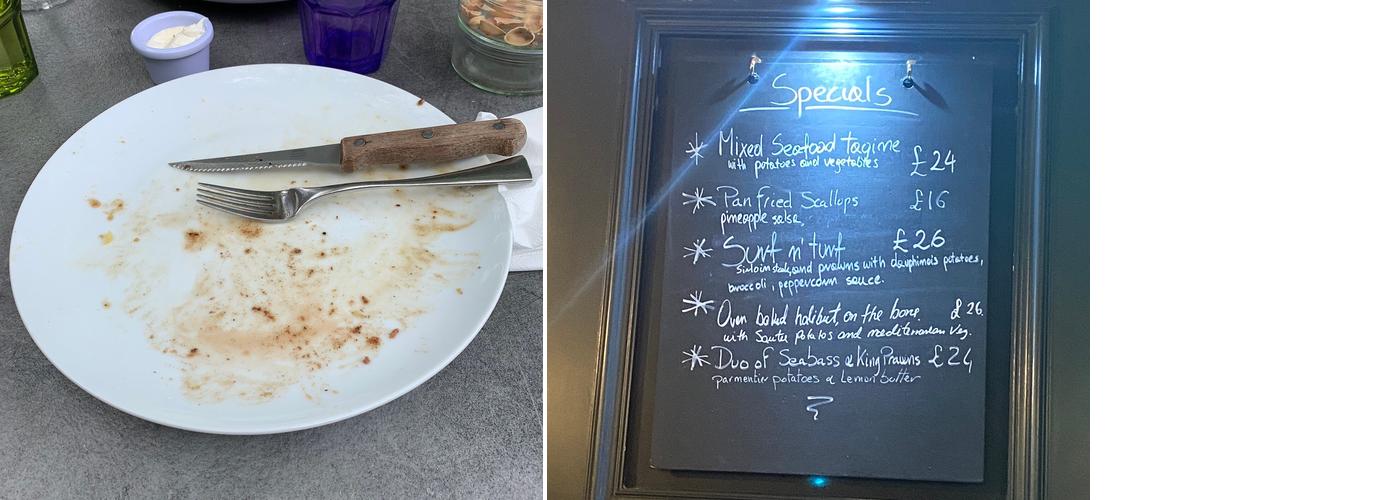 Specials
* Mixed Seafood tagine £24
with potatoes and vegetables
* Pan fried Scallops £16
pineapple salsa,
* Surf n' turf £26
Sirloin steak, and prawns with dauphinois potatoes,
broccoli, peppercorn sauce.
* Oven baked halibut, on the bone. £26.
with Sauter potatos and mediterranean Veg.
* Duo of Seabass & King Prawns £24
parmentier potatoes & Lemon butter